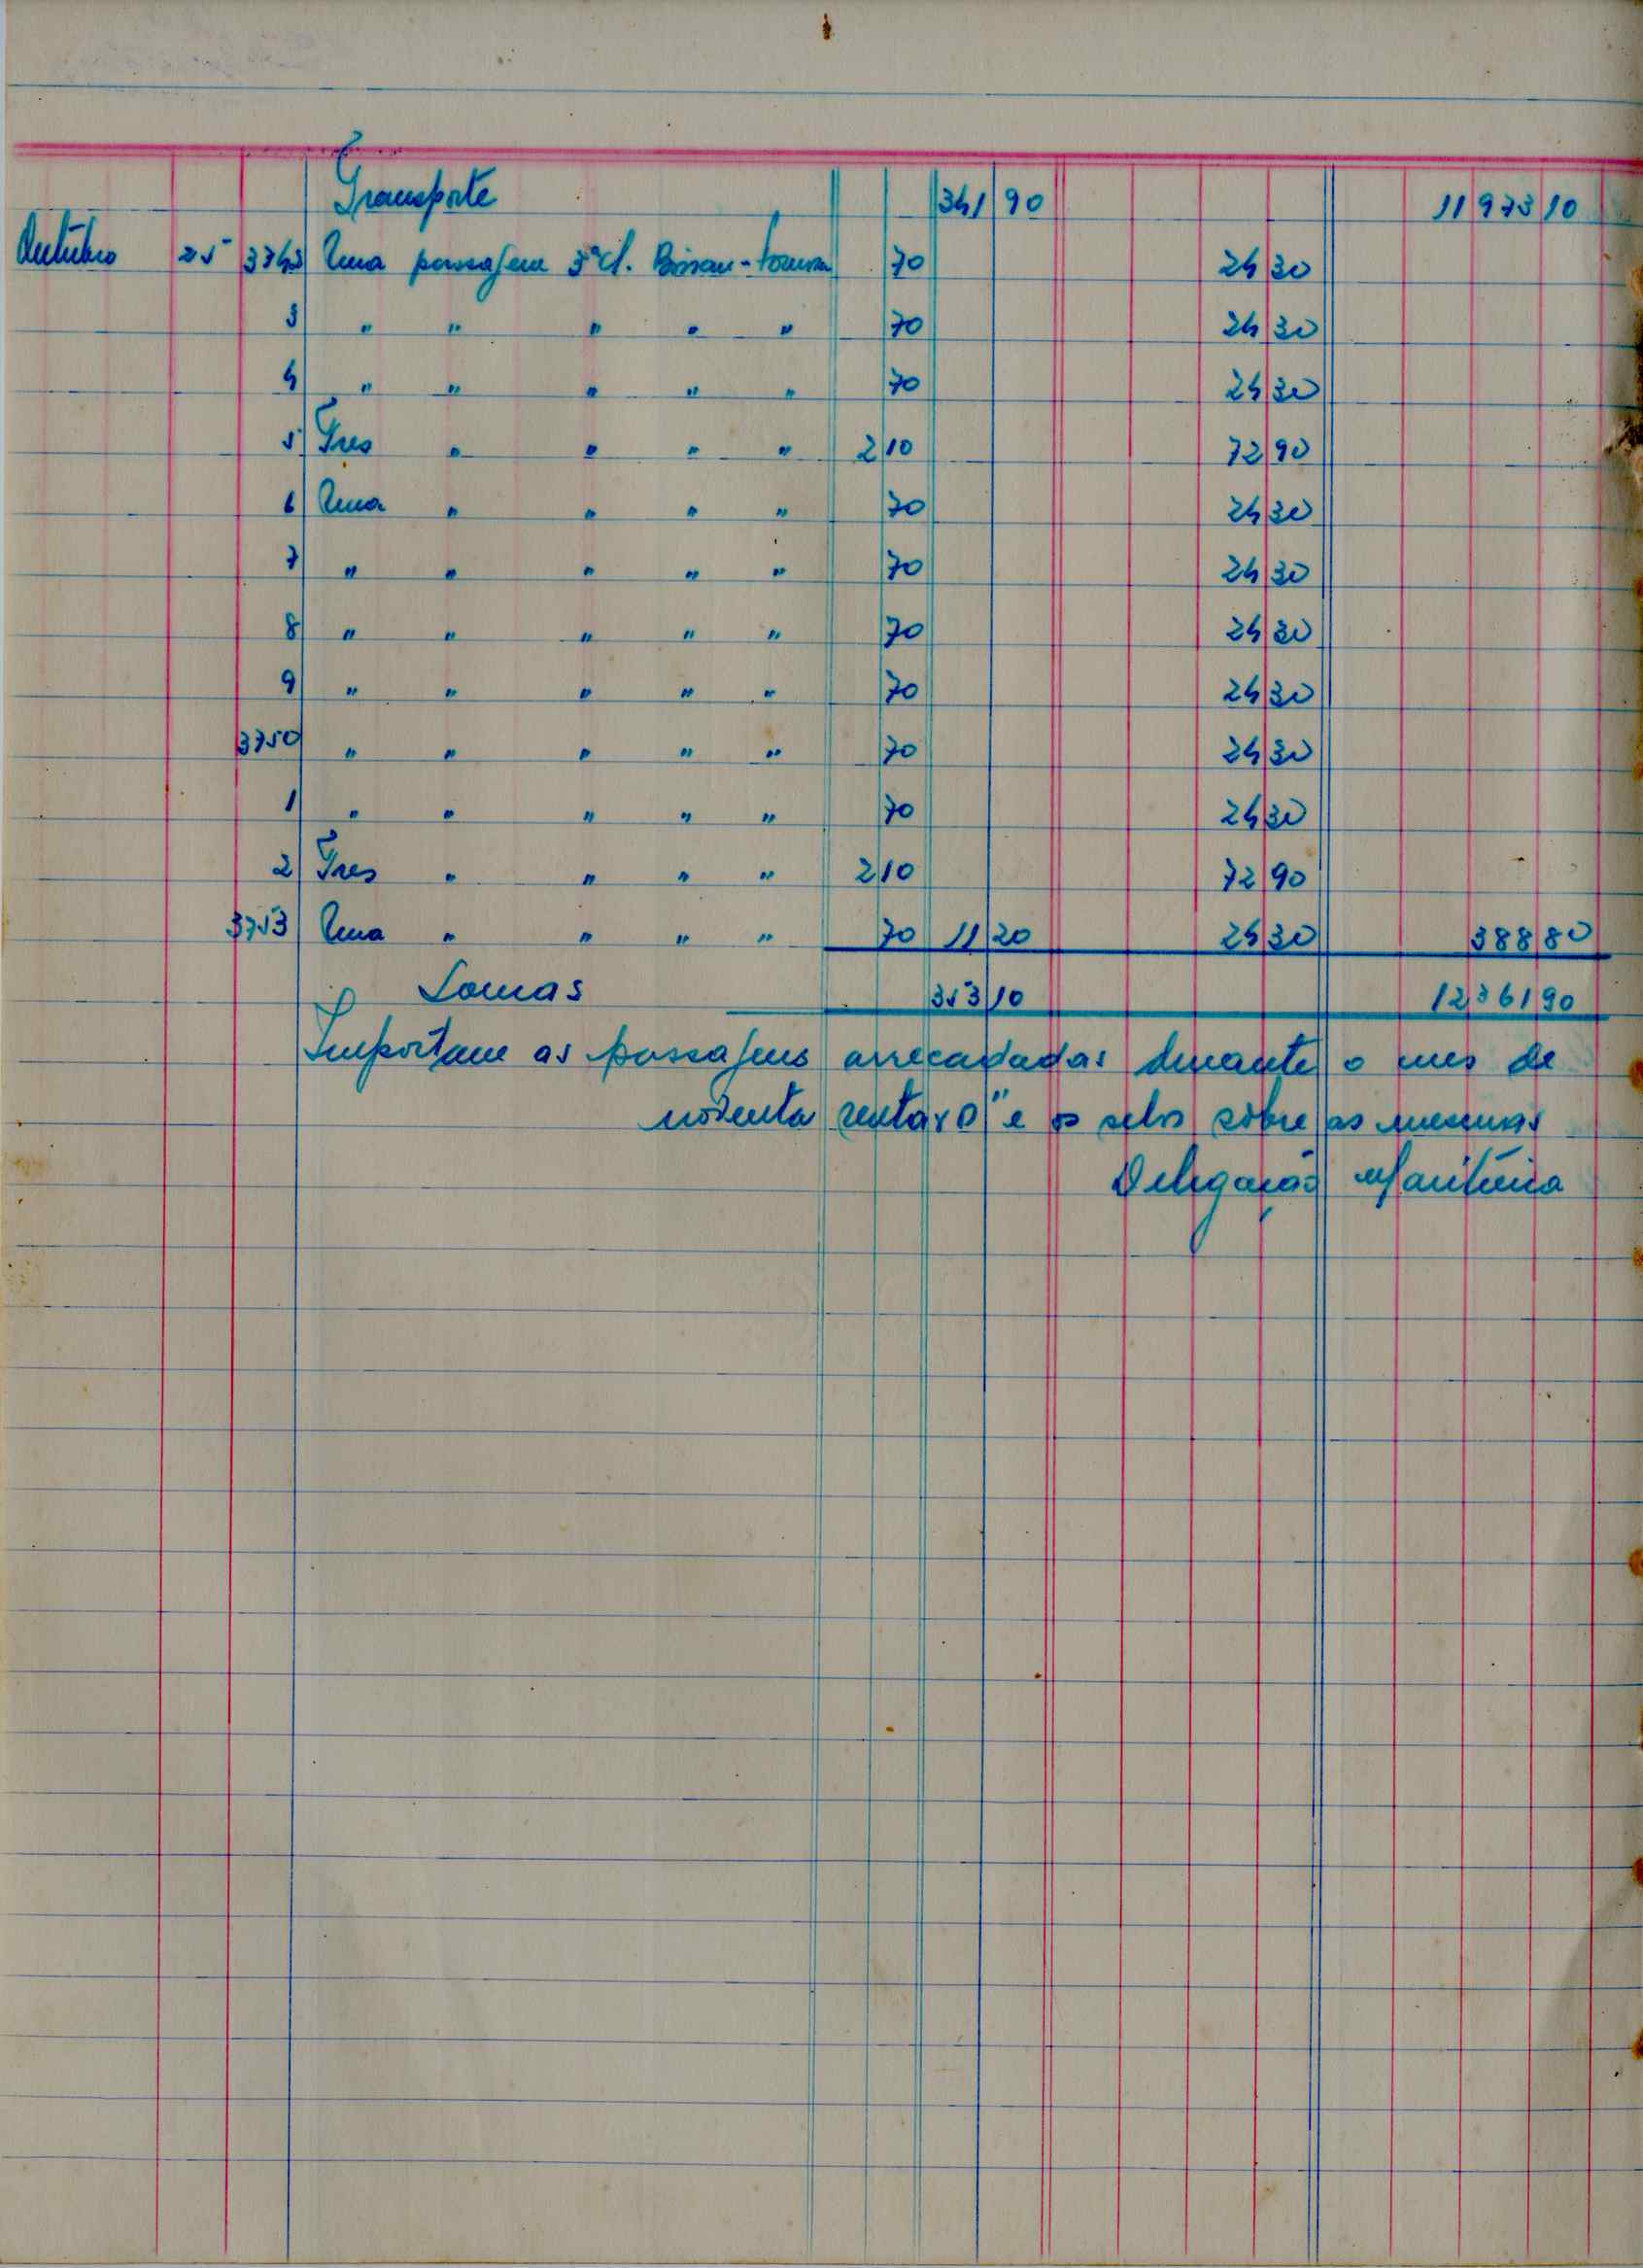 Transporte 341 90 11973 10
Outubro 25 3742 Uma passagem 3ª cl. Bissau- 70 24 30
3 " " " " " 70 24 30
4 " " " " " 70 24 30
5 Tres " " " " 2 10 72 90
6 Uma " " " " 70 24 30
7 " " " " " 70 24 30
8 " " " " " 70 24 30
9 " " " " " 70 24 30
3750 " " " " " 70 24 30
1 " " " " " 70 24 30
2 Tres " " " " 2 10 72 90
3753 Uma " " " " 70 11 20 24 30 388 80
Somas 353 10 12361 90
Importam as passagens arrecadadas durante o mes de
noventa centavos" e os selos sobre as mesmas
Delegação Maritima